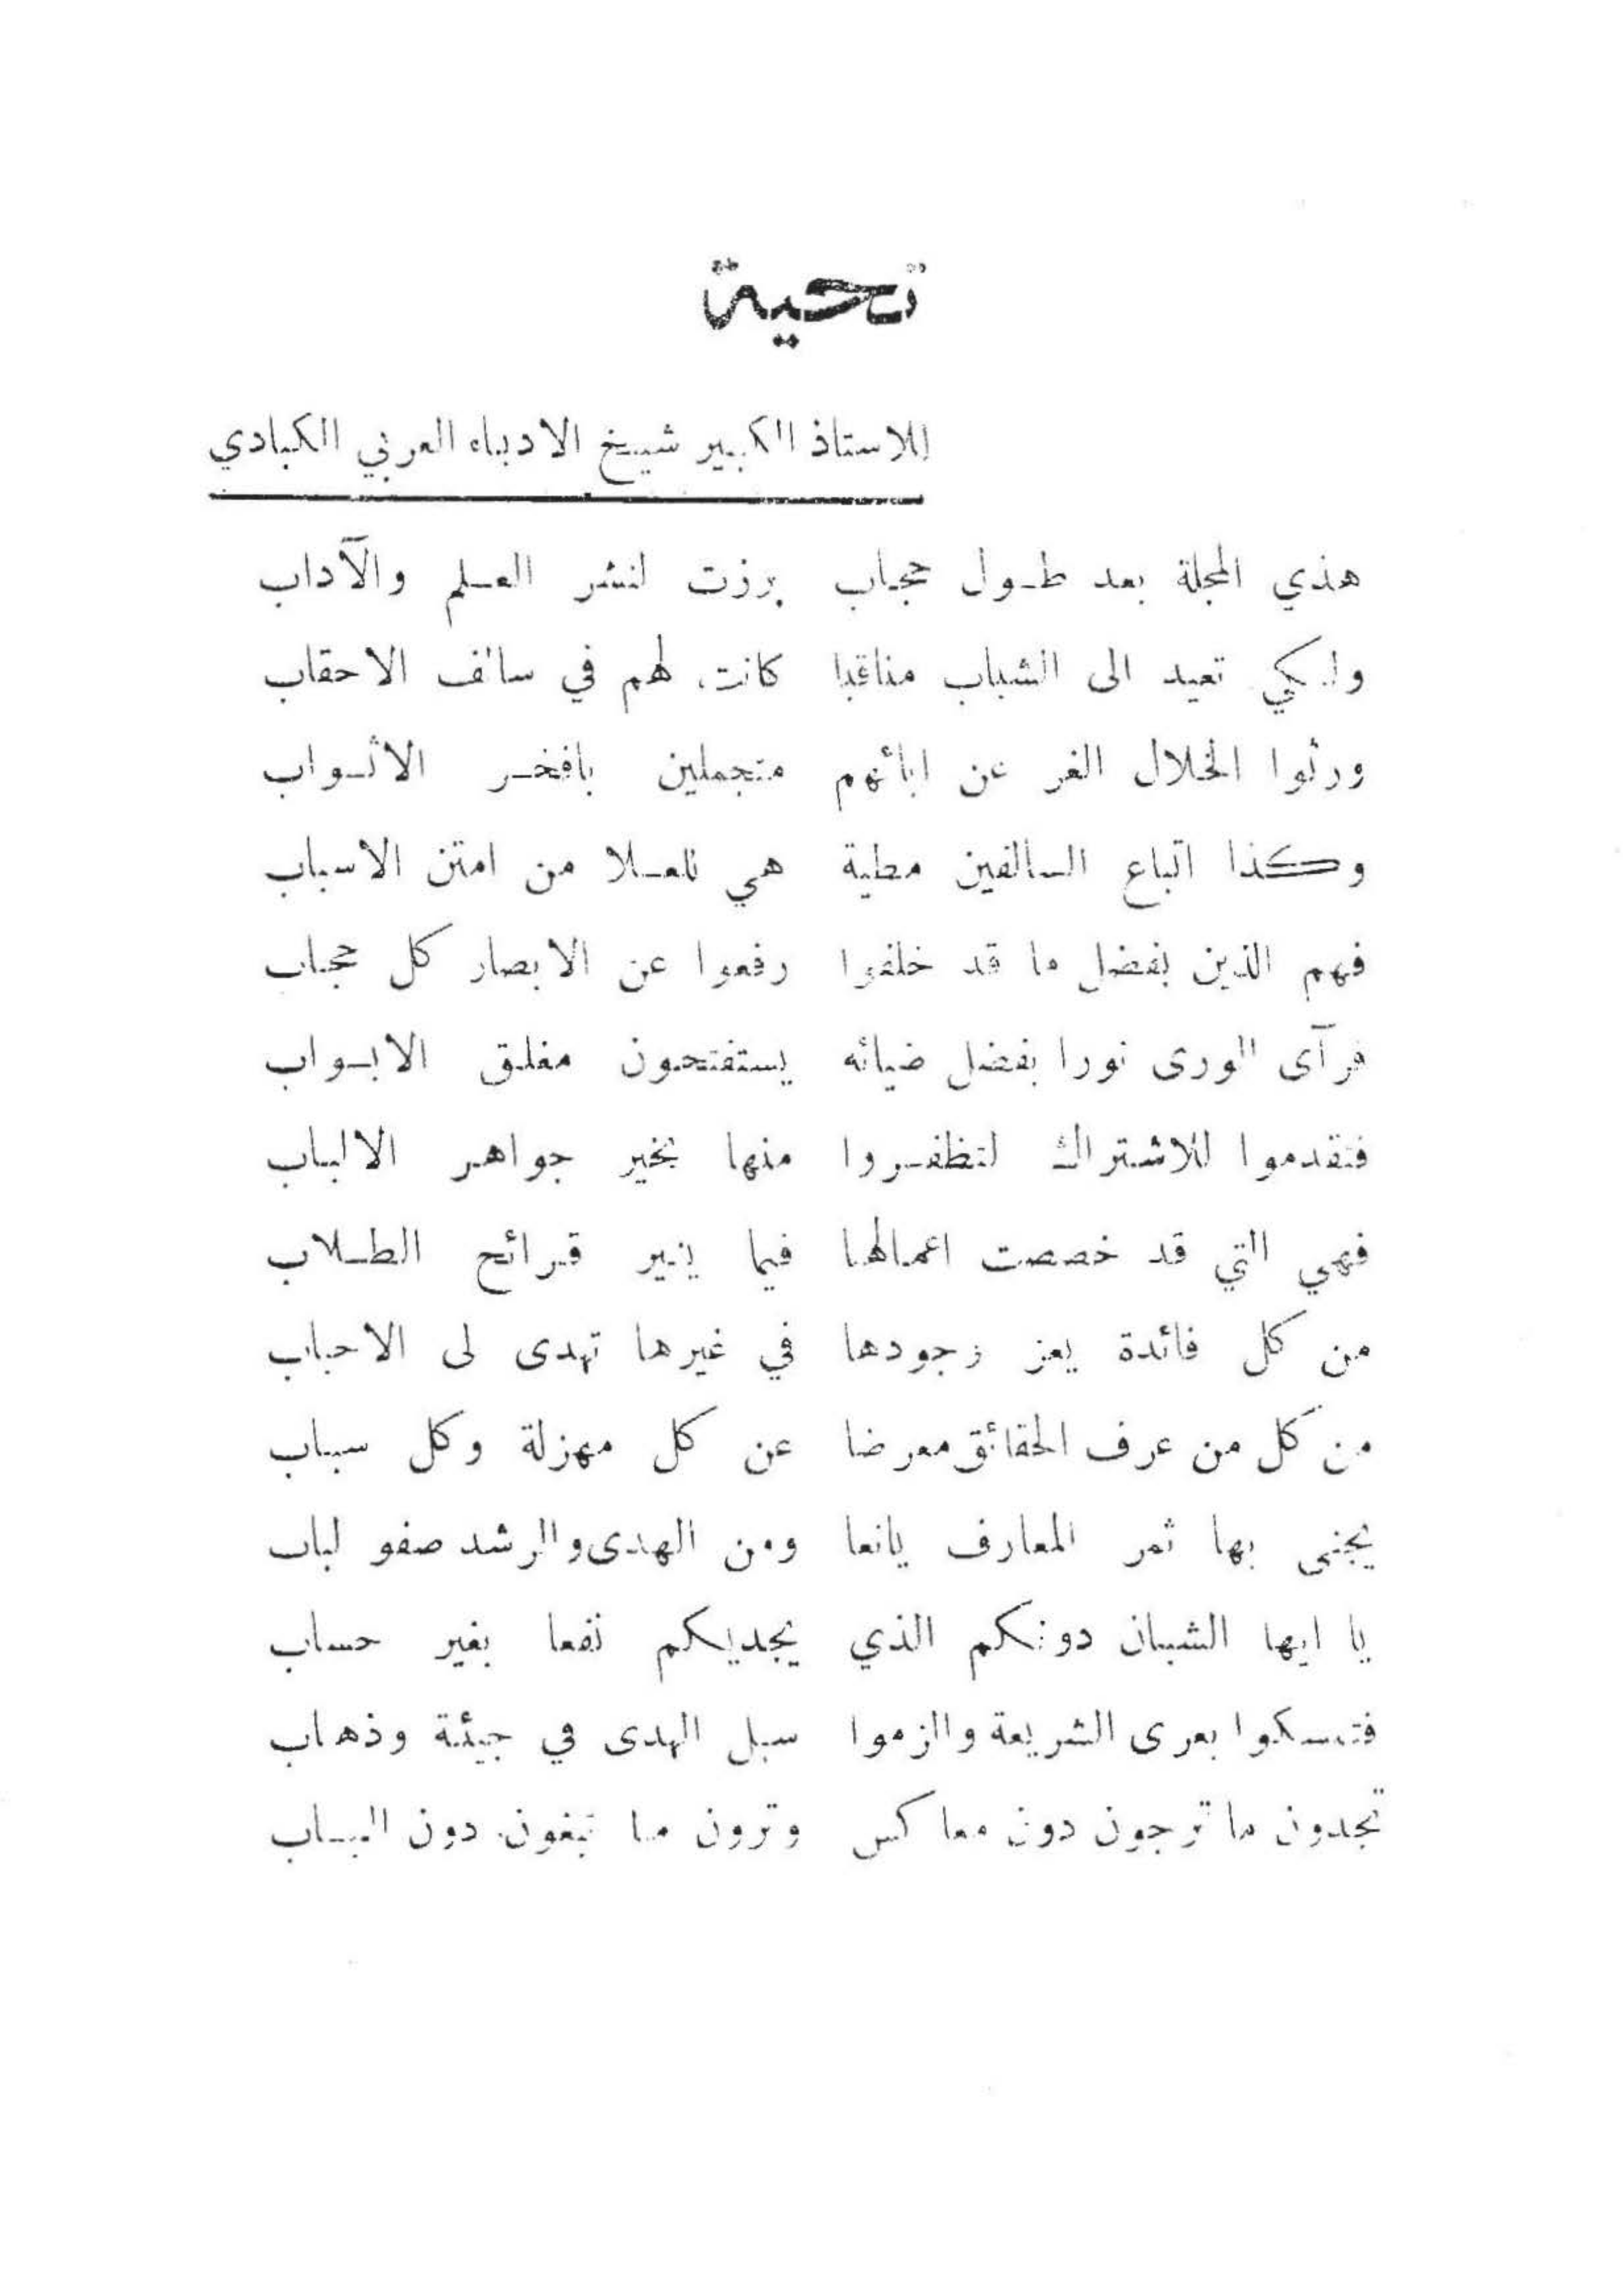 تحية
للاستاذ الكبير شيخ الادباء العربي الكبادي
هذي المجلة بعد طول حجاب برزت لنشر العلم والآداب
ولكي تعيد الى الشباب مناقبا كانت لهم في سالف الاحقاب
ورثوا الخلال الغر عن ابائهم متجملين بافخر الاثواب
وكذا اتباع السالفين مطية هي للعلا من امتن الاسباب
فهم الذين بفضل ما قد خلفوا رفعوا عن الابصار كل حجاب
فرآى الورى نورا بفضل ضيائه يستفتحون مغلق الابواب
فتقدموا للاشتراك لتظفروا منها بخير جواهر الالباب
فهي التي قد خصصت اعمالها فيما ينير قرائح الطلاب
من كل فائدة يعز وجودها في غيرها تهدى لى الاحباب
من كل من عرف الحقائق معرضا عن كل مهزلة وكل سباب
يجنى بها ثمر المعارف يانعا ومن الهدى والرشد صفو لباب
يا ايها الشبان دونكم الذي يجديكم نفعا بغير حساب
فتمسكوا بعرى الشريعة والزموا سبل الهدى في جيئة وذهاب
تجدون ما ترجون دون معاكس وترون ما تبغون دون